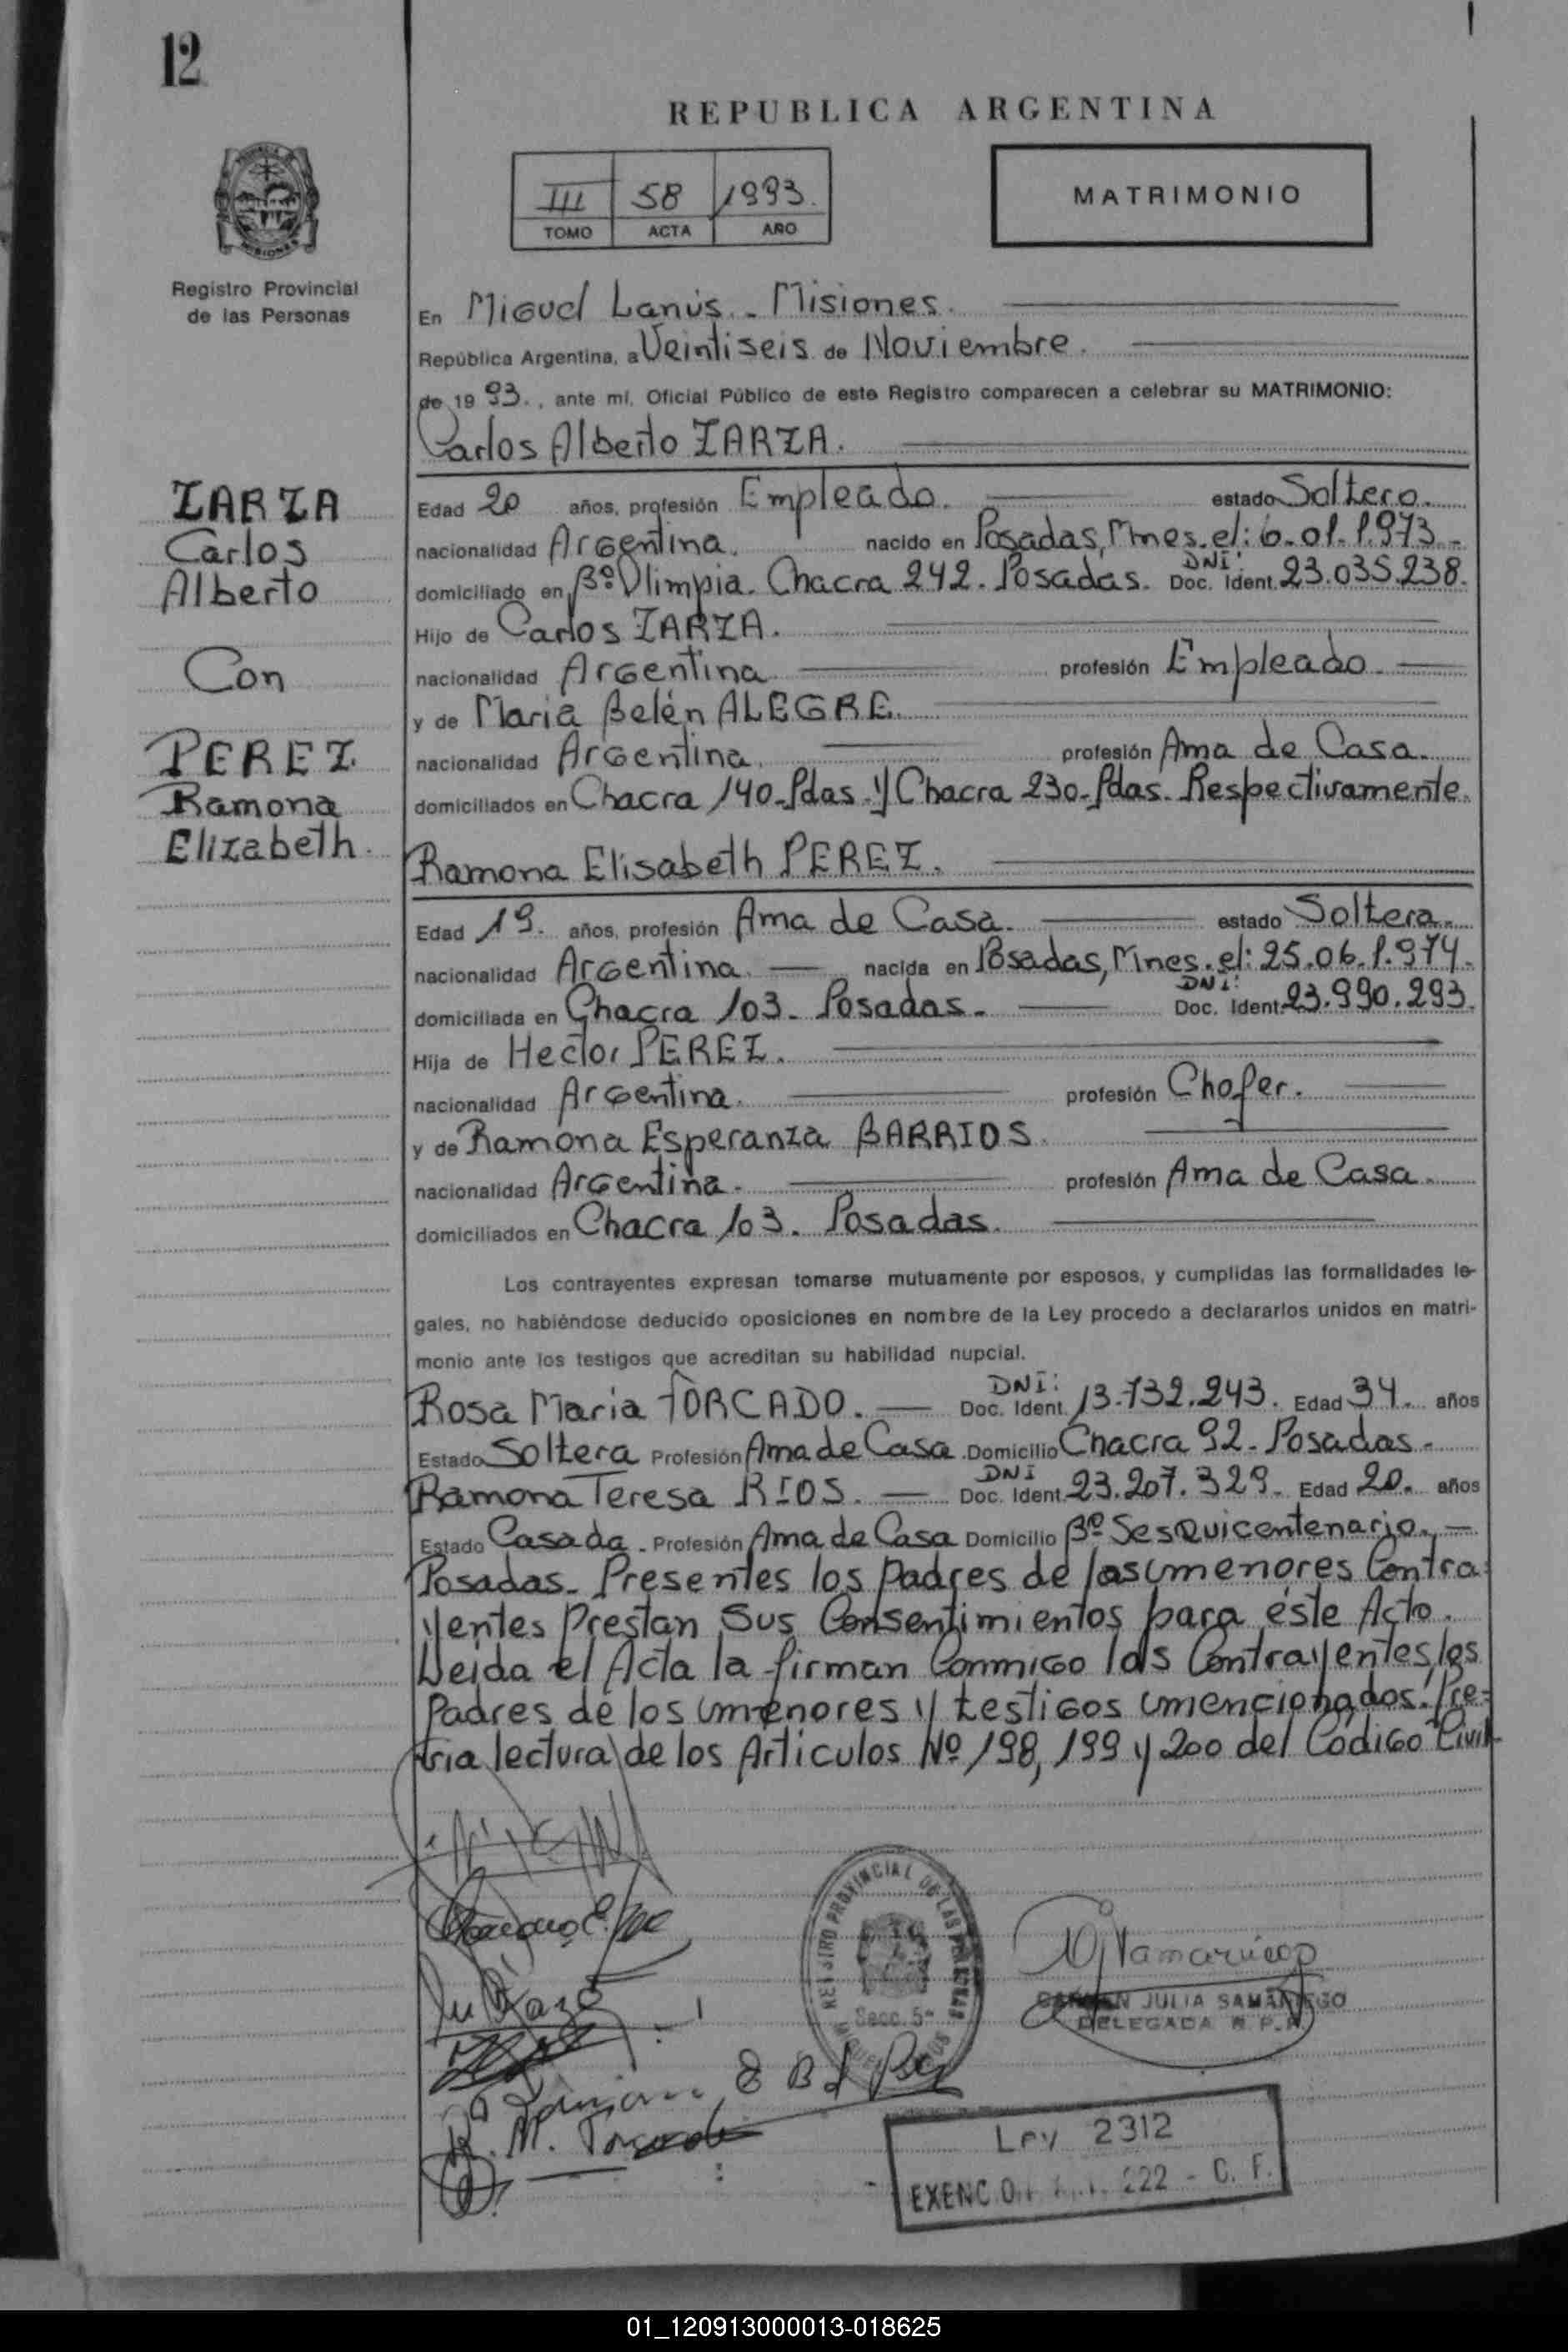 12
REPUBLICA ARGENTINA
III 58 1993.
TOMO ACTA AÑO
MATRIMONIO
Registro Provincial
de las Personas
En Miguel Lanús - Misiones.
República Argentina, a Veintiseis de Noviembre.
de 19 93., ante mí, Oficial Público de este Registro comparecen a celebrar su MATRIMONIO:
Carlos Alberto ZARZA.
ZARZA
Carlos
Alberto
Con
PEREZ
Ramona
Elizabeth.
Edad 20 años, profesión Empleado. estado Soltero.
nacionalidad Argentina. nacido en Posadas, Mnes. el: 6.01.1.973.-
domiciliado en Bº Olimpia. Chacra 242. Posadas. DNI: Doc. Ident. 23.035.238.
Hijo de Carlos ZARZA.
nacionalidad Argentina profesión Empleado.
y de Maria Belén ALEGRE.
nacionalidad Argentina. profesión Ama de Casa.
domiciliados en Chacra 140-Pdas. y Chacra 230-Pdas. Respectivamente.
Ramona Elisabeth PEREZ.
Edad 19. años, profesión Ama de Casa. estado Soltera.
nacionalidad Argentina. nacida en Posadas, Mnes. el: 25.06.1.974.
domiciliada en Chacra 103. Posadas. DNI: Doc. Ident. 23.990.293.
Hija de Hector PEREZ.
nacionalidad Argentina. profesión Chofer.
y de Ramona Esperanza BARRIOS.
nacionalidad Argentina. profesión Ama de Casa.
domiciliados en Chacra 103. Posadas.
Los contrayentes expresan tomarse mutuamente por esposos, y cumplidas las formalidades le-
gales, no habiéndose deducido oposiciones en nombre de la Ley procedo a declararlos unidos en matri-
monio ante los testigos que acreditan su habilidad nupcial.
Rosa Maria TORCADO. DNI: Doc. Ident. 13.732.243. Edad 34. años
Estado Soltera Profesión Ama de Casa. Domicilio Chacra 92- Posadas.
Ramona Teresa RIOS. DNI Doc. Ident. 23.207.329. Edad 20. años
Estado Casada. Profesión Ama de Casa Domicilio Bº Sesquicentenario.
Posadas. Presentes los Padres de los menores Contra-
yentes Prestan Sus Consentimientos para éste Acto.
Leida el Acta la firman Conmigo los Contrayentes, los
Padres de los menores y testigos mencionados. Pre-
via lectura de los Articulos Nº 198, 199 y 200 del Código Civil
REGISTRO PROVINCIAL DE LAS PERSONAS
Secc. 5ª
CARMEN JULIA SAMANIEGO
DELEGADA R. P. P.
R. M. Torcado
Ley 2312
222 - C. F.
01_120913000013-018625